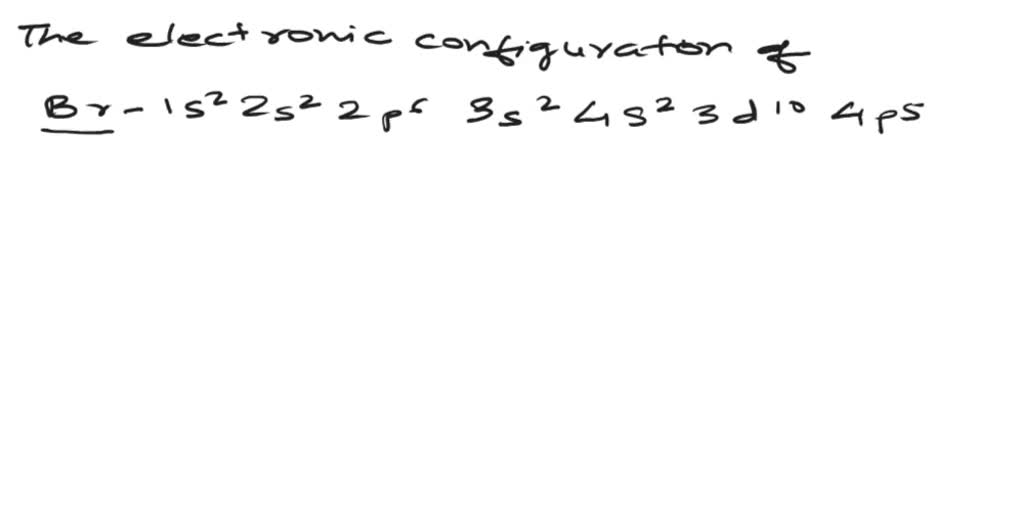 The electronic configuraton of
Br - 1s² 2s² 2p⁶ 3s² 4s² 3d¹⁰ 4p5